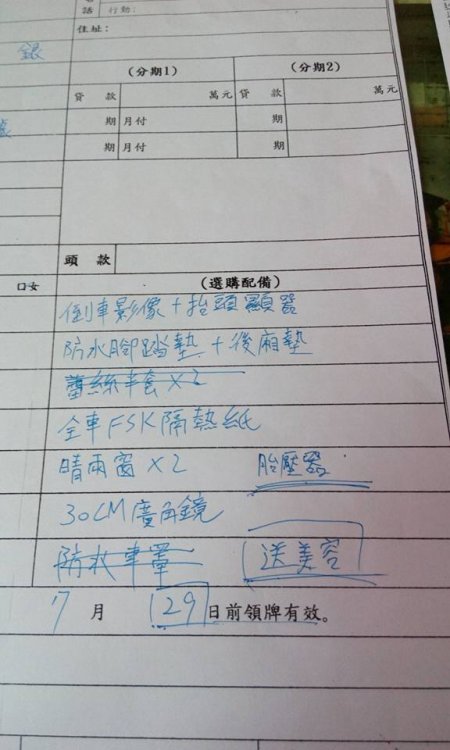 話 行動:
住址:
銀
(分期1) (分期2)
貸 款 萬元 貸 款 萬元
期 月付 期
期 月付 期
頭 款
口女 (選購配備)
倒車影像+抬頭顯器
防水腳踏墊+後廂墊
蕾絲半套×2
全車FSK隔熱紙
晴雨窗×2 胎壓器
30CM廣角鏡
防水車罩 送美容
7 月 29 日前領牌有效。